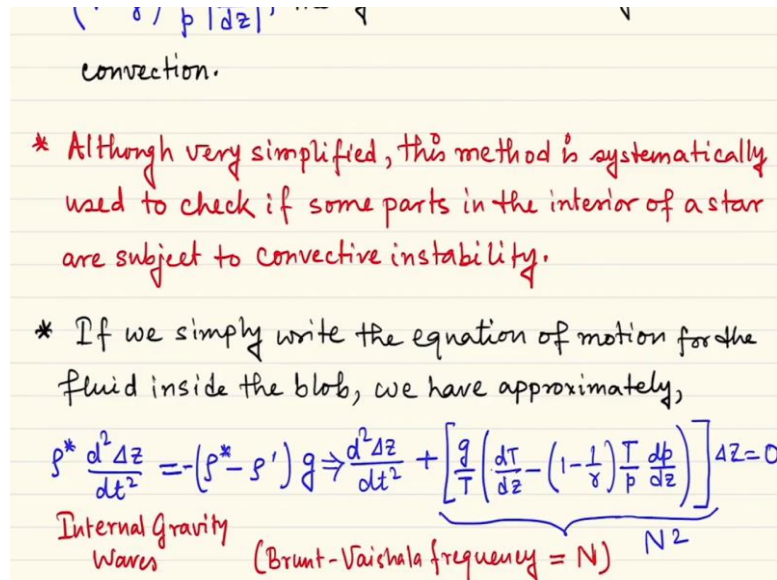 (1 - 1/γ) T/p |dp/dz|,
convection.
* Although very simplified, this method is systematically
used to check if some parts in the interior of a star
are subject to convective instability.
* If we simply write the equation of motion for the
fluid inside the blob, we have approximately,
ρ* d²Δz/dt² = -(ρ* - ρ') g ⇒ d²Δz/dt² + [g/T (dT/dz - (1 - 1/γ) T/p dp/dz)] Δz = 0
Internal Gravity
Waves (Brunt-Vaishala frequency = N) N2